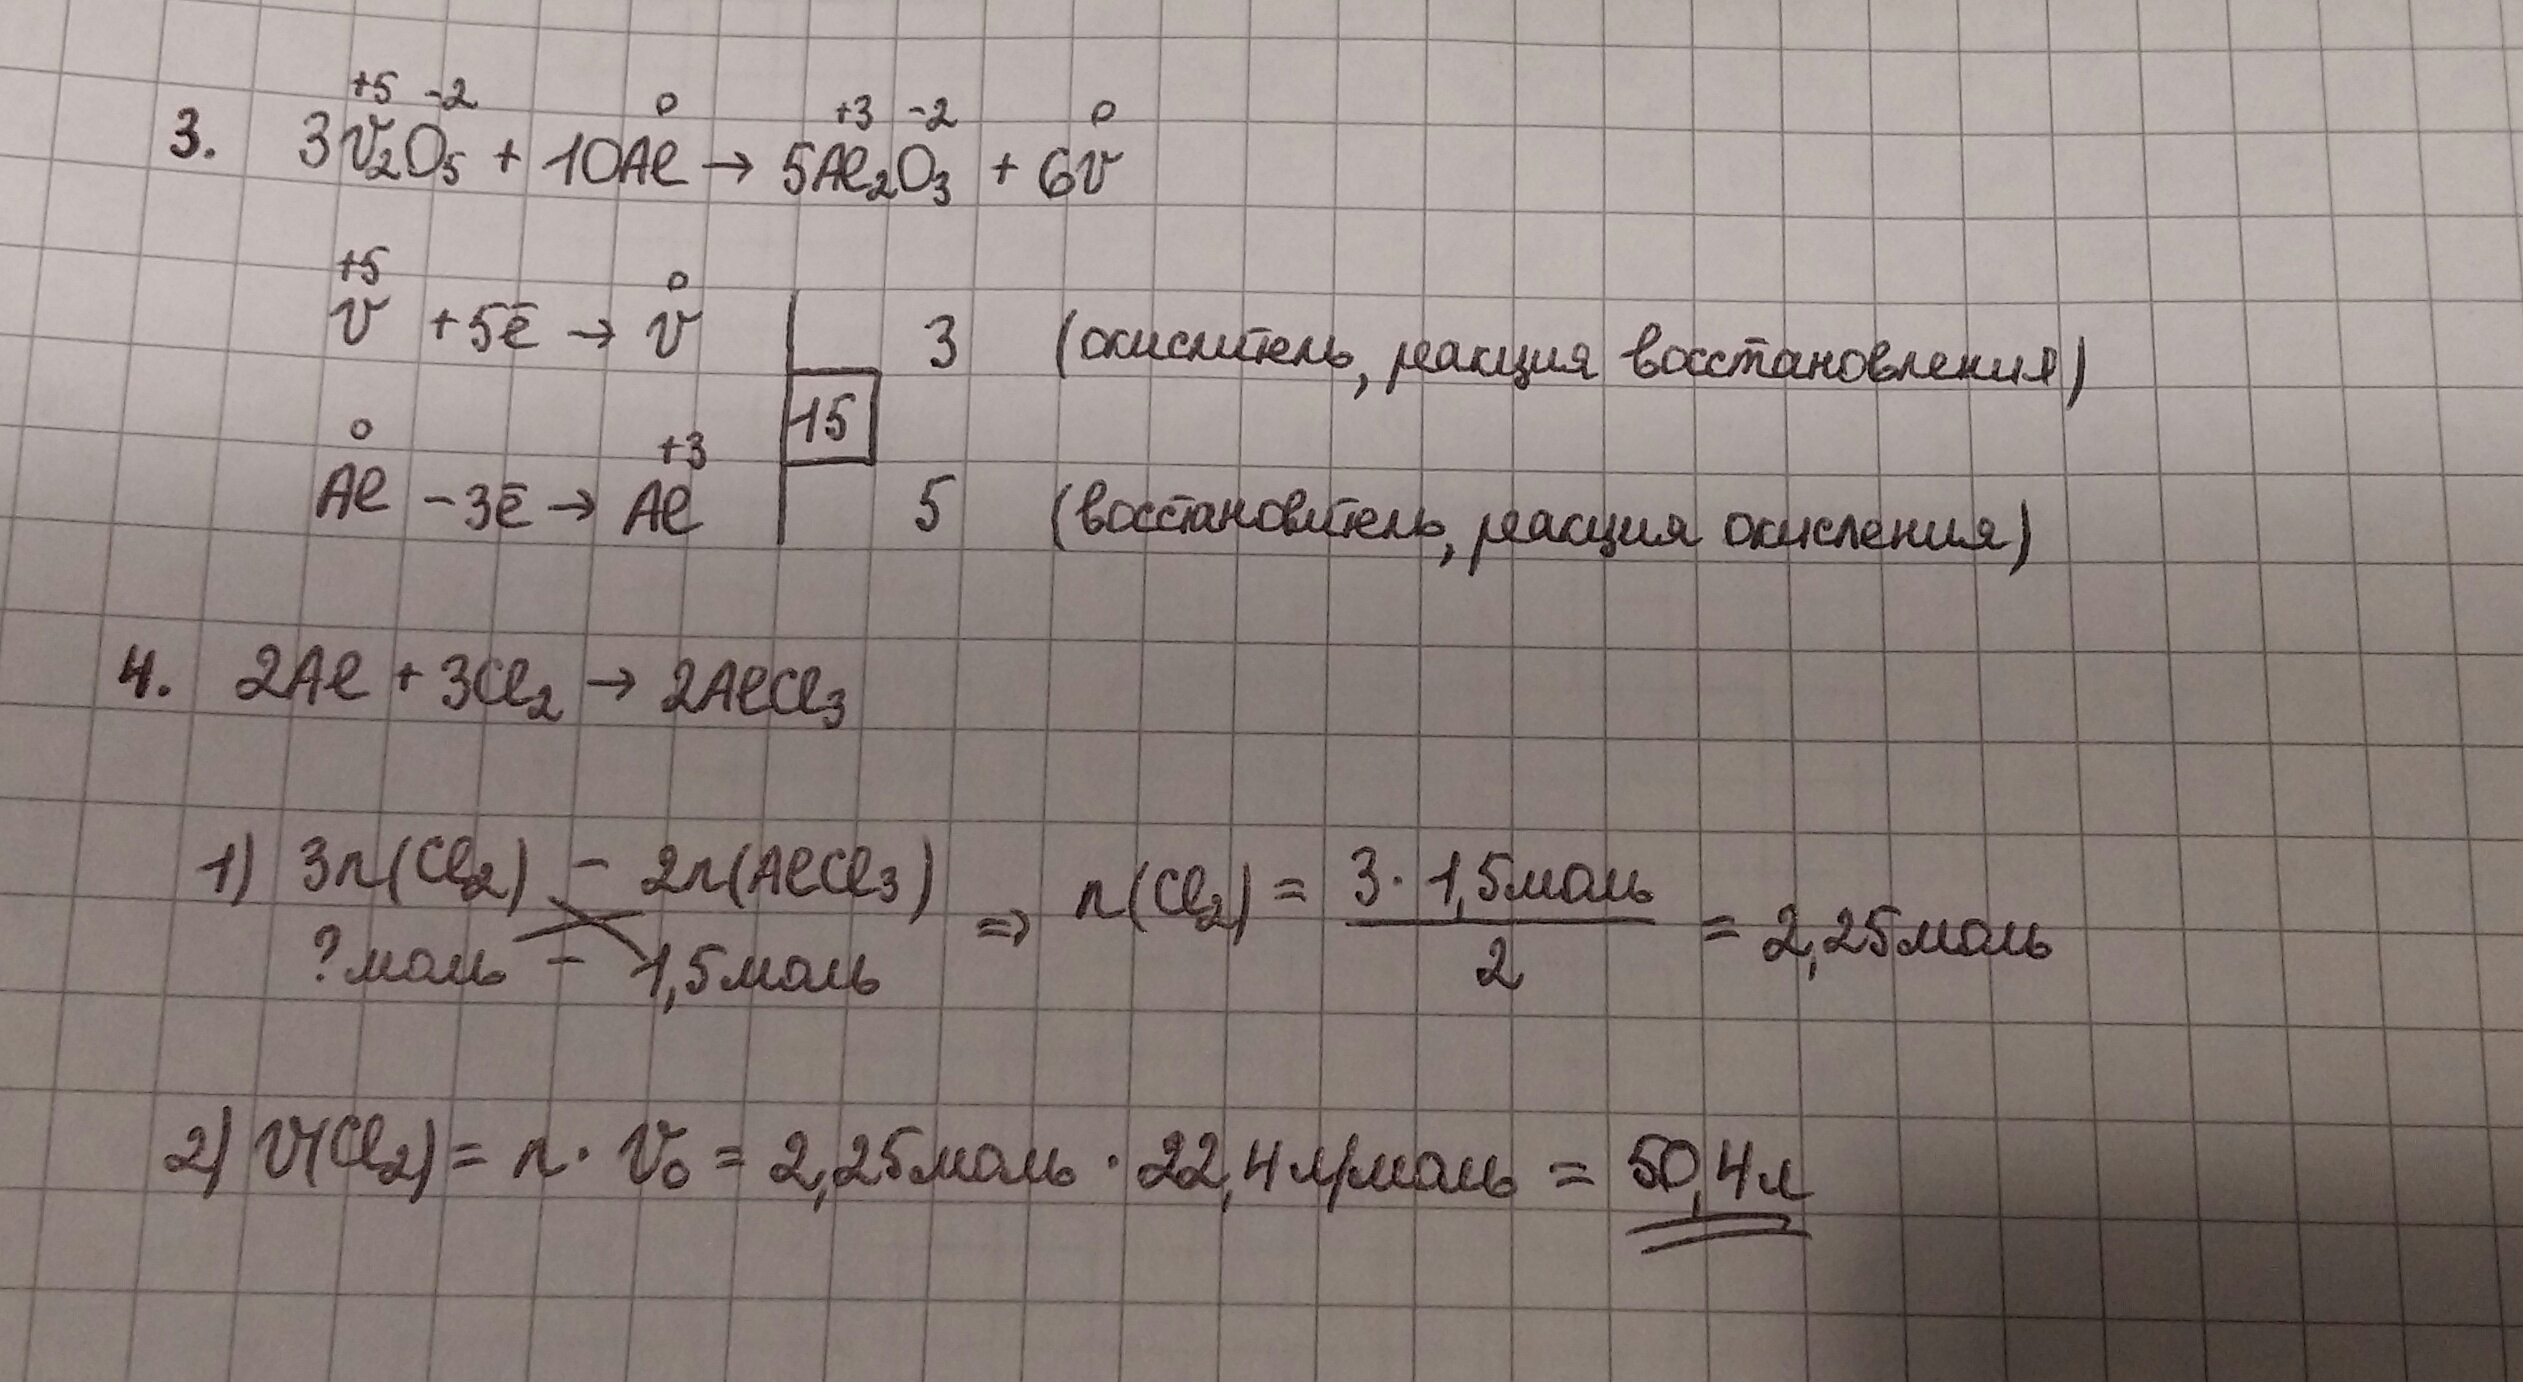 +5 -2 0 +3 -2 0
3. 3V₂O₅ + 10Al → 5Al₂O₃ + 6V
+5 0
V +5ē → V 3 (окислитель, реакция восстановления)
15
0 +3
Al -3ē → Al 5 (восстановитель, реакция окисления)
4. 2Al + 3Cl₂ → 2AlCl₃
1) 3n(Cl₂) - 2n(AlCl₃) ⇒ n(Cl₂) = 3 · 1,5моль / 2 = 2,25моль
?моль - 1,5моль
2) V(Cl₂) = n · V₀ = 2,25моль · 22,4л/моль = 50,4л